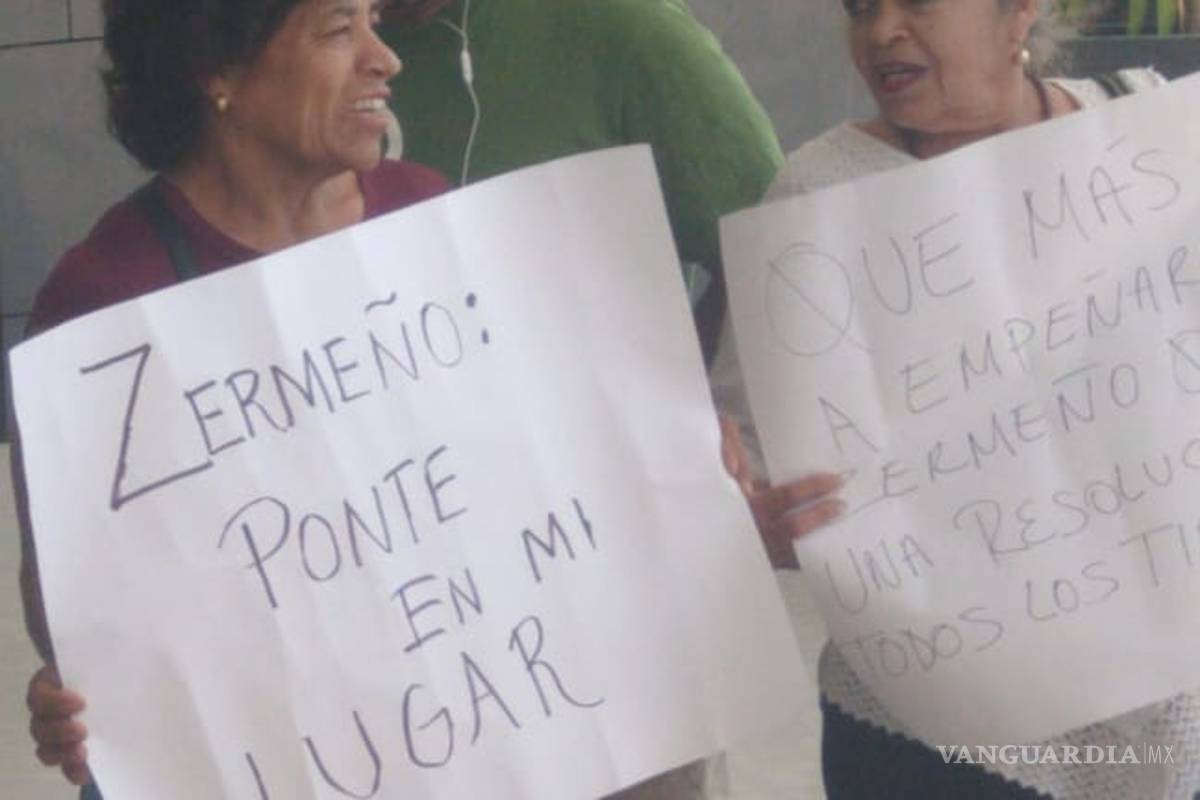 ZERMEÑO:
PONTE
EN MI
LUGAR
QUE MÁS
A EMPEÑAR
ZERMEÑO
UNA RESOLUC
TODOS LOS TI
VANGUARDIA|MX